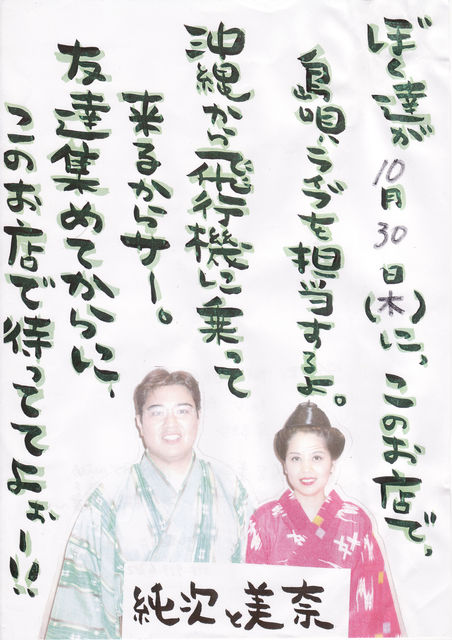 ぼく達が10月30日(木)に、このお店で、
島唄ライヴを担当するよ。
沖縄から飛行機に乗って
来るからサー。
友達集めてからに、
このお店で待っててよぉー!!
純次と美奈